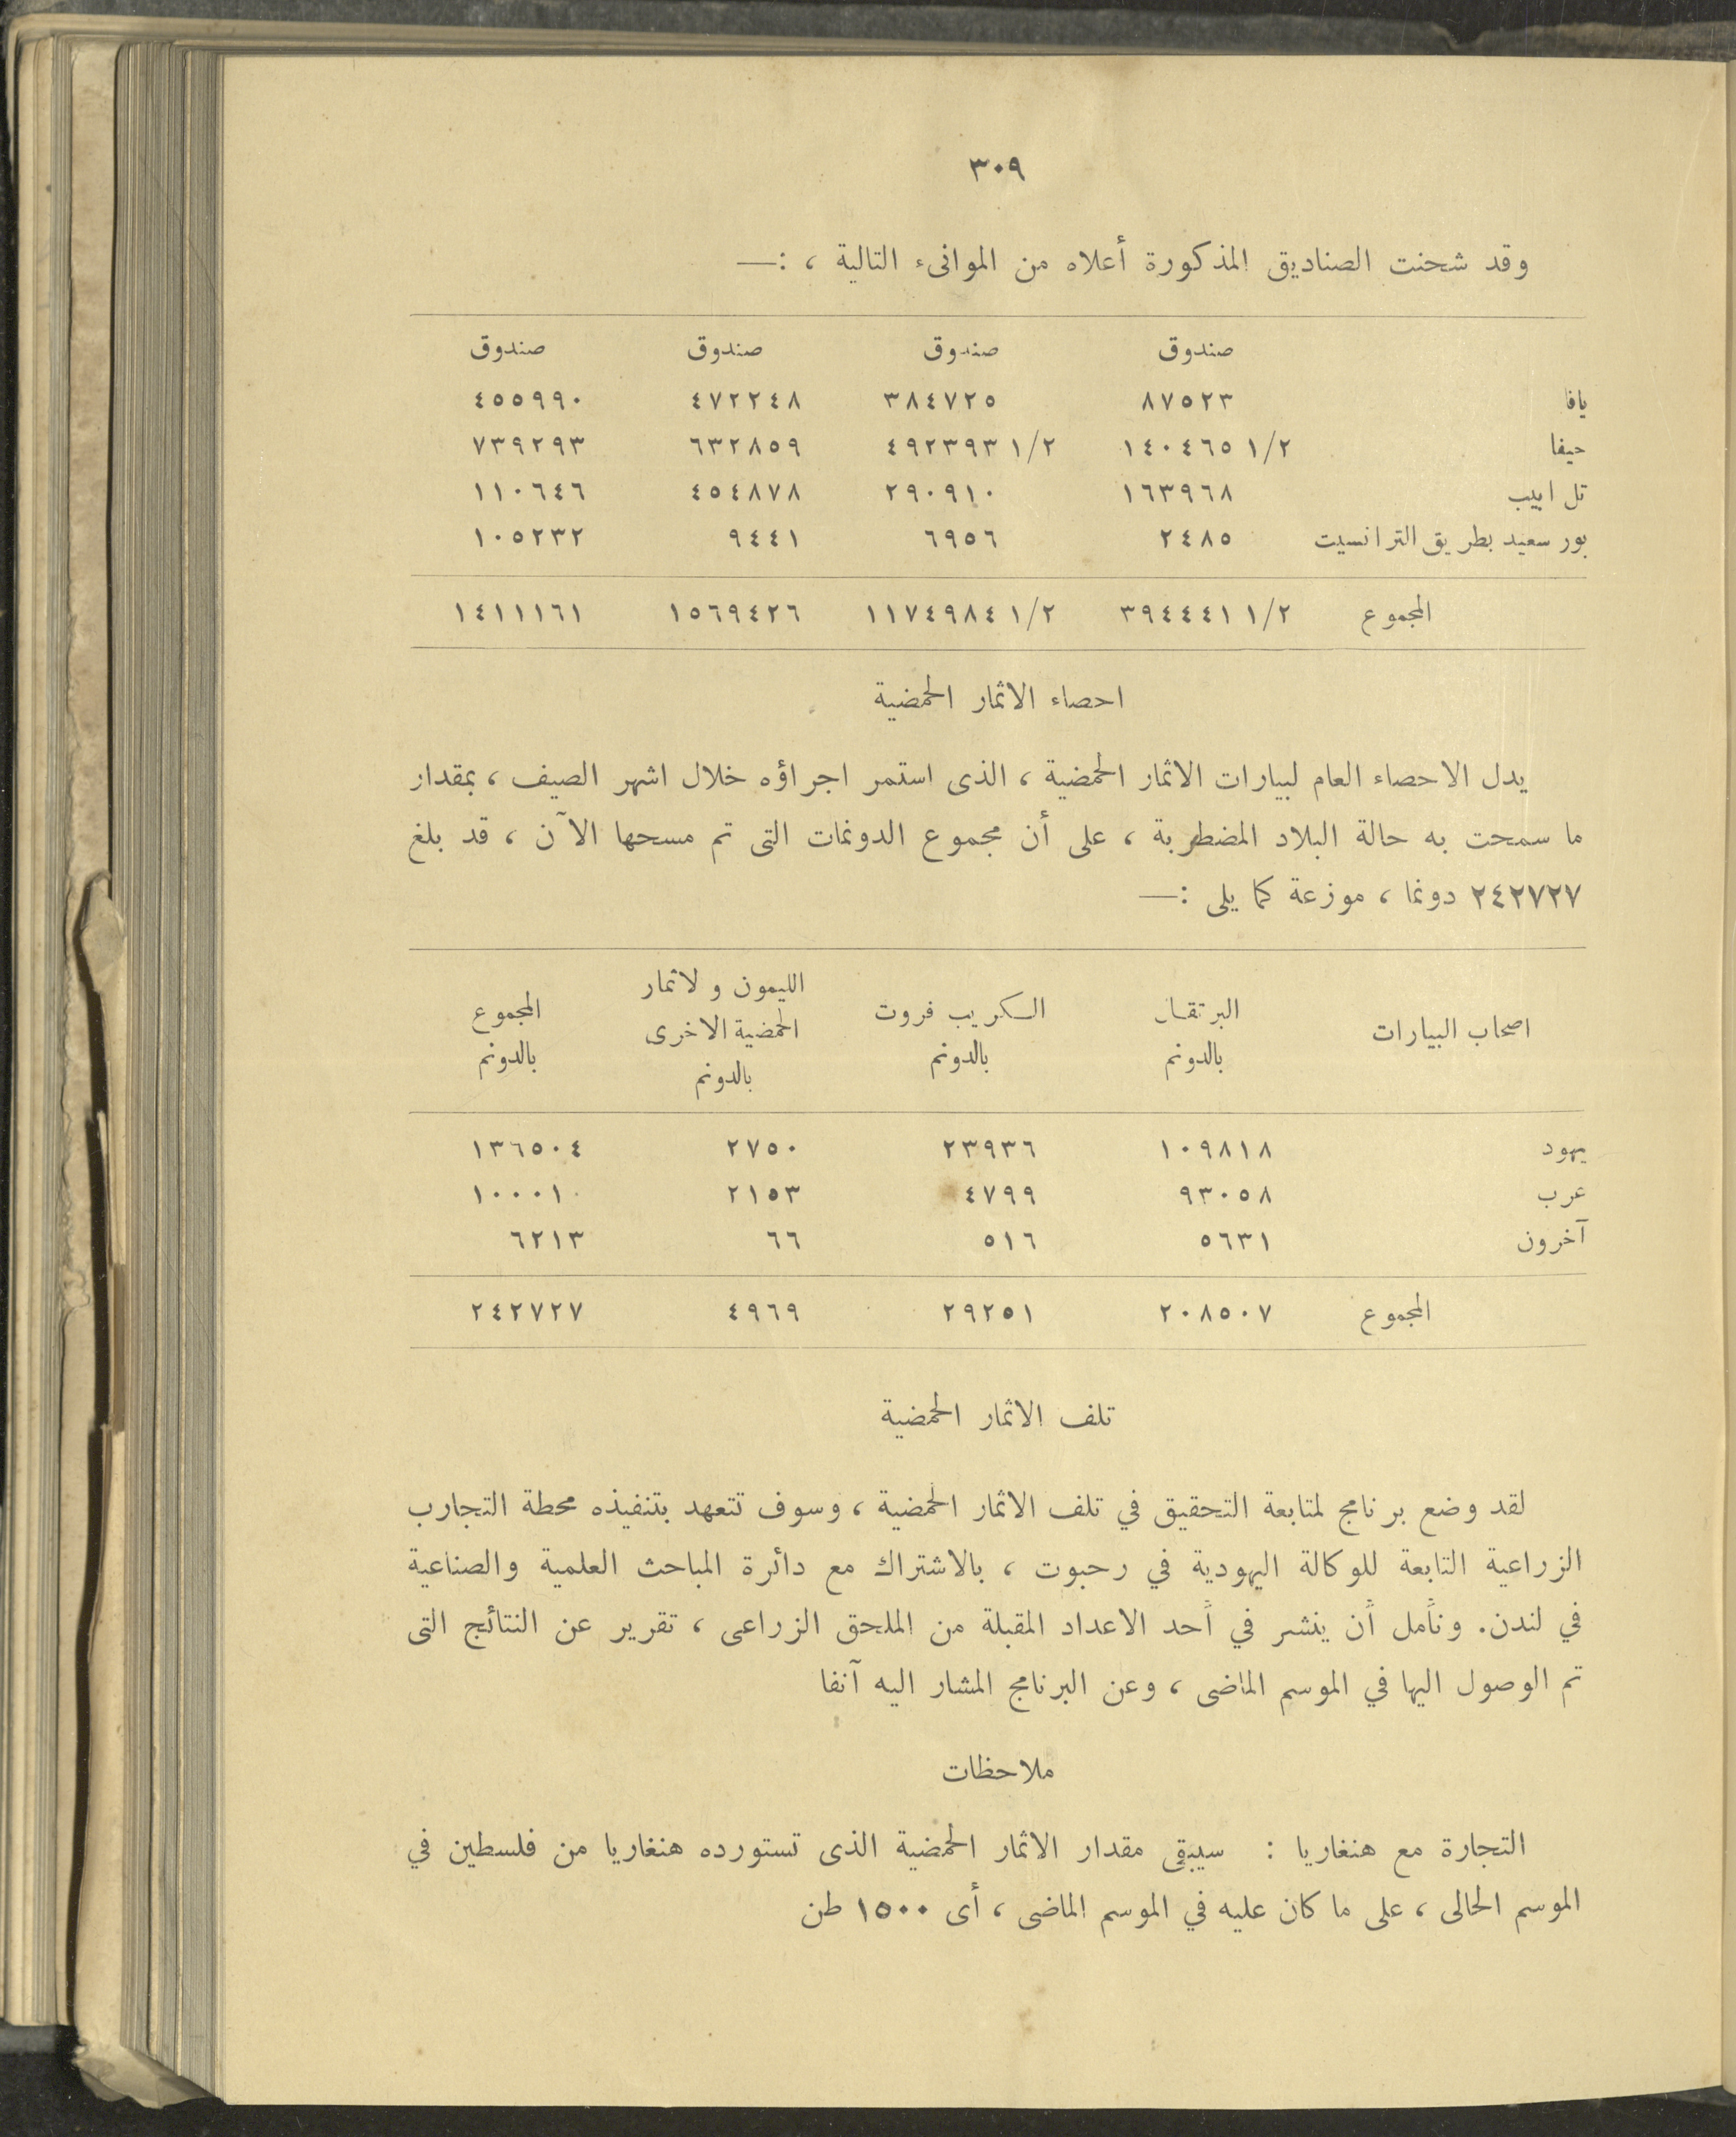 ٣٠٩
وقد شحنت الصناديق المذكورة أعلاه من الموانىء التالية ، :—
صندوق صندوق صندوق صندوق
يافا ٨٧٥٢٣ ٣٨٤٧٢٥ ٤٧٢٢٤٨ ٤٥٥٩٩٠
حيفا ١٤٠٤٦٥ ١/٢ ٤٩٢٣٩٣ ١/٢ ٦٣٢٨٥٩ ٧٣٩٢٩٣
تل ابيب ١٦٣٩٦٨ ٢٩٠٩١٠ ٤٥٤٨٧٨ ١١٠٦٤٦
بور سعيد بطريق الترانسيت ٢٤٨٥ ٦٩٥٦ ٩٤٤١ ١٠٥٢٣٢
المجموع ٣٩٤٤٤١ ١/٢ ١١٧٤٩٨٤ ١/٢ ١٥٦٩٤٢٦ ١٤١١١٦١
احصاء الاثمار الحمضية
يدل الاحصاء العام لبيارات الاثمار الحمضية ، الذى استمر اجراؤه خلال اشهر الصيف ، بمقدار
ما سمحت به حالة البلاد المضطربة ، على أن مجموع الدونمات التى تم مسحها الآن ، قد بلغ
٢٤٢٧٢٧ دونما ، موزعة كما يلى :—
اصحاب البيارات البرتقال بالدونم الكريب فروت بالدونم الليمون و لاثمار الحمضية الاخرى بالدونم المجموع بالدونم
يهود ١٠٩٨١٨ ٢٣٩٣٦ ٢٧٥٠ ١٣٦٥٠٤
عرب ٩٣٠٥٨ ٤٧٩٩ ٢١٥٣ ١٠٠٠١٠
آخرون ٥٦٣١ ٥١٦ ٦٦ ٦٢١٣
المجموع ٢٠٨٥٠٧ ٢٩٢٥١ ٤٩٦٩ ٢٤٢٧٢٧
تلف الاثمار الحمضية
لقد وضع برنامج لمتابعة التحقيق في تلف الاثمار الحمضية ، وسوف تتعهد بتنفيذه محطة التجارب
الزراعية التابعة للوكالة اليهودية في رحبوت ، بالاشتراك مع دائرة المباحث العلمية والصناعية
في لندن. ونأمل أن ينشر في أحد الاعداد المقبلة من الملحق الزراعى ، تقرير عن النتائج التى
تم الوصول اليها في الموسم الماضى ، وعن البرنامج المشار اليه آنفا
ملاحظات
التجارة مع هنغاريا : سيبقى مقدار الاثمار الحمضية الذى تستورده هنغاريا من فلسطين في
الموسم الحالى ، على ما كان عليه في الموسم الماضى ، أى ١٥٠٠ طن